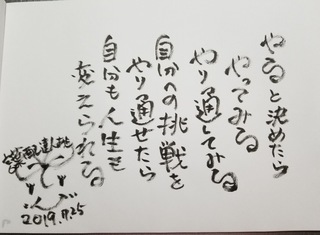 やると決めたら
やってみる
やり通してみる
自分への挑戦を
やり通せたら
自分も人生も
変えられる
2019.11.25